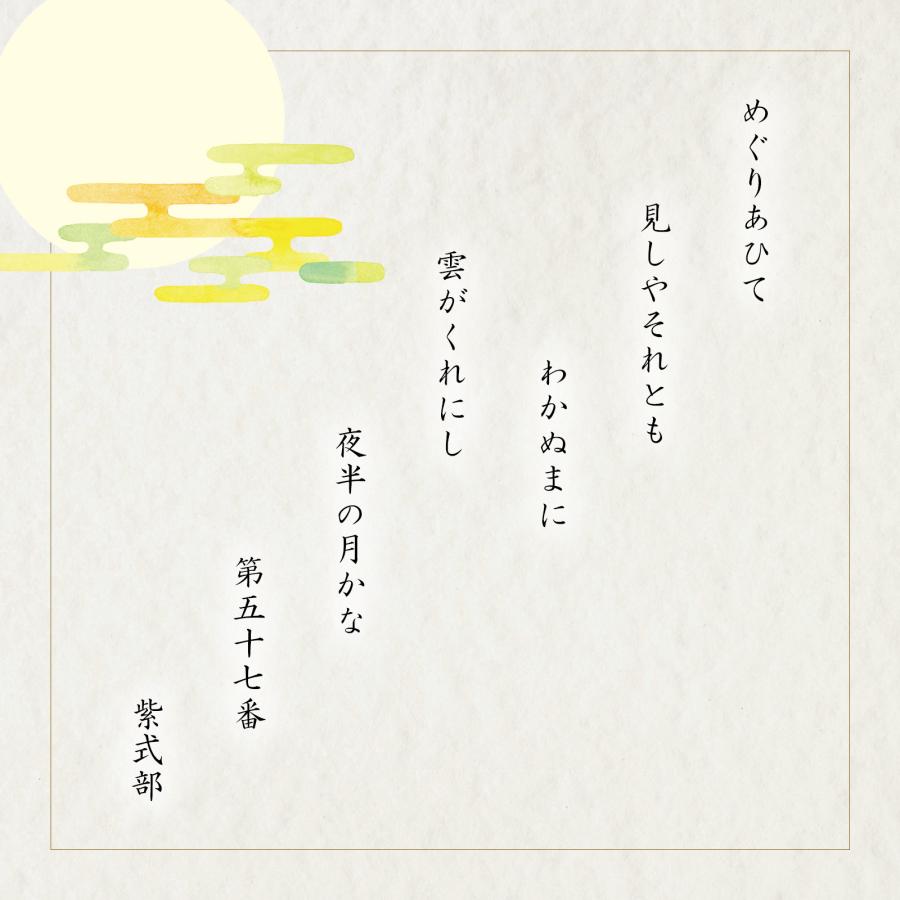 めぐりあひて
見しやそれとも
わかぬまに
雲がくれにし
夜半の月かな
第五十七番
紫式部